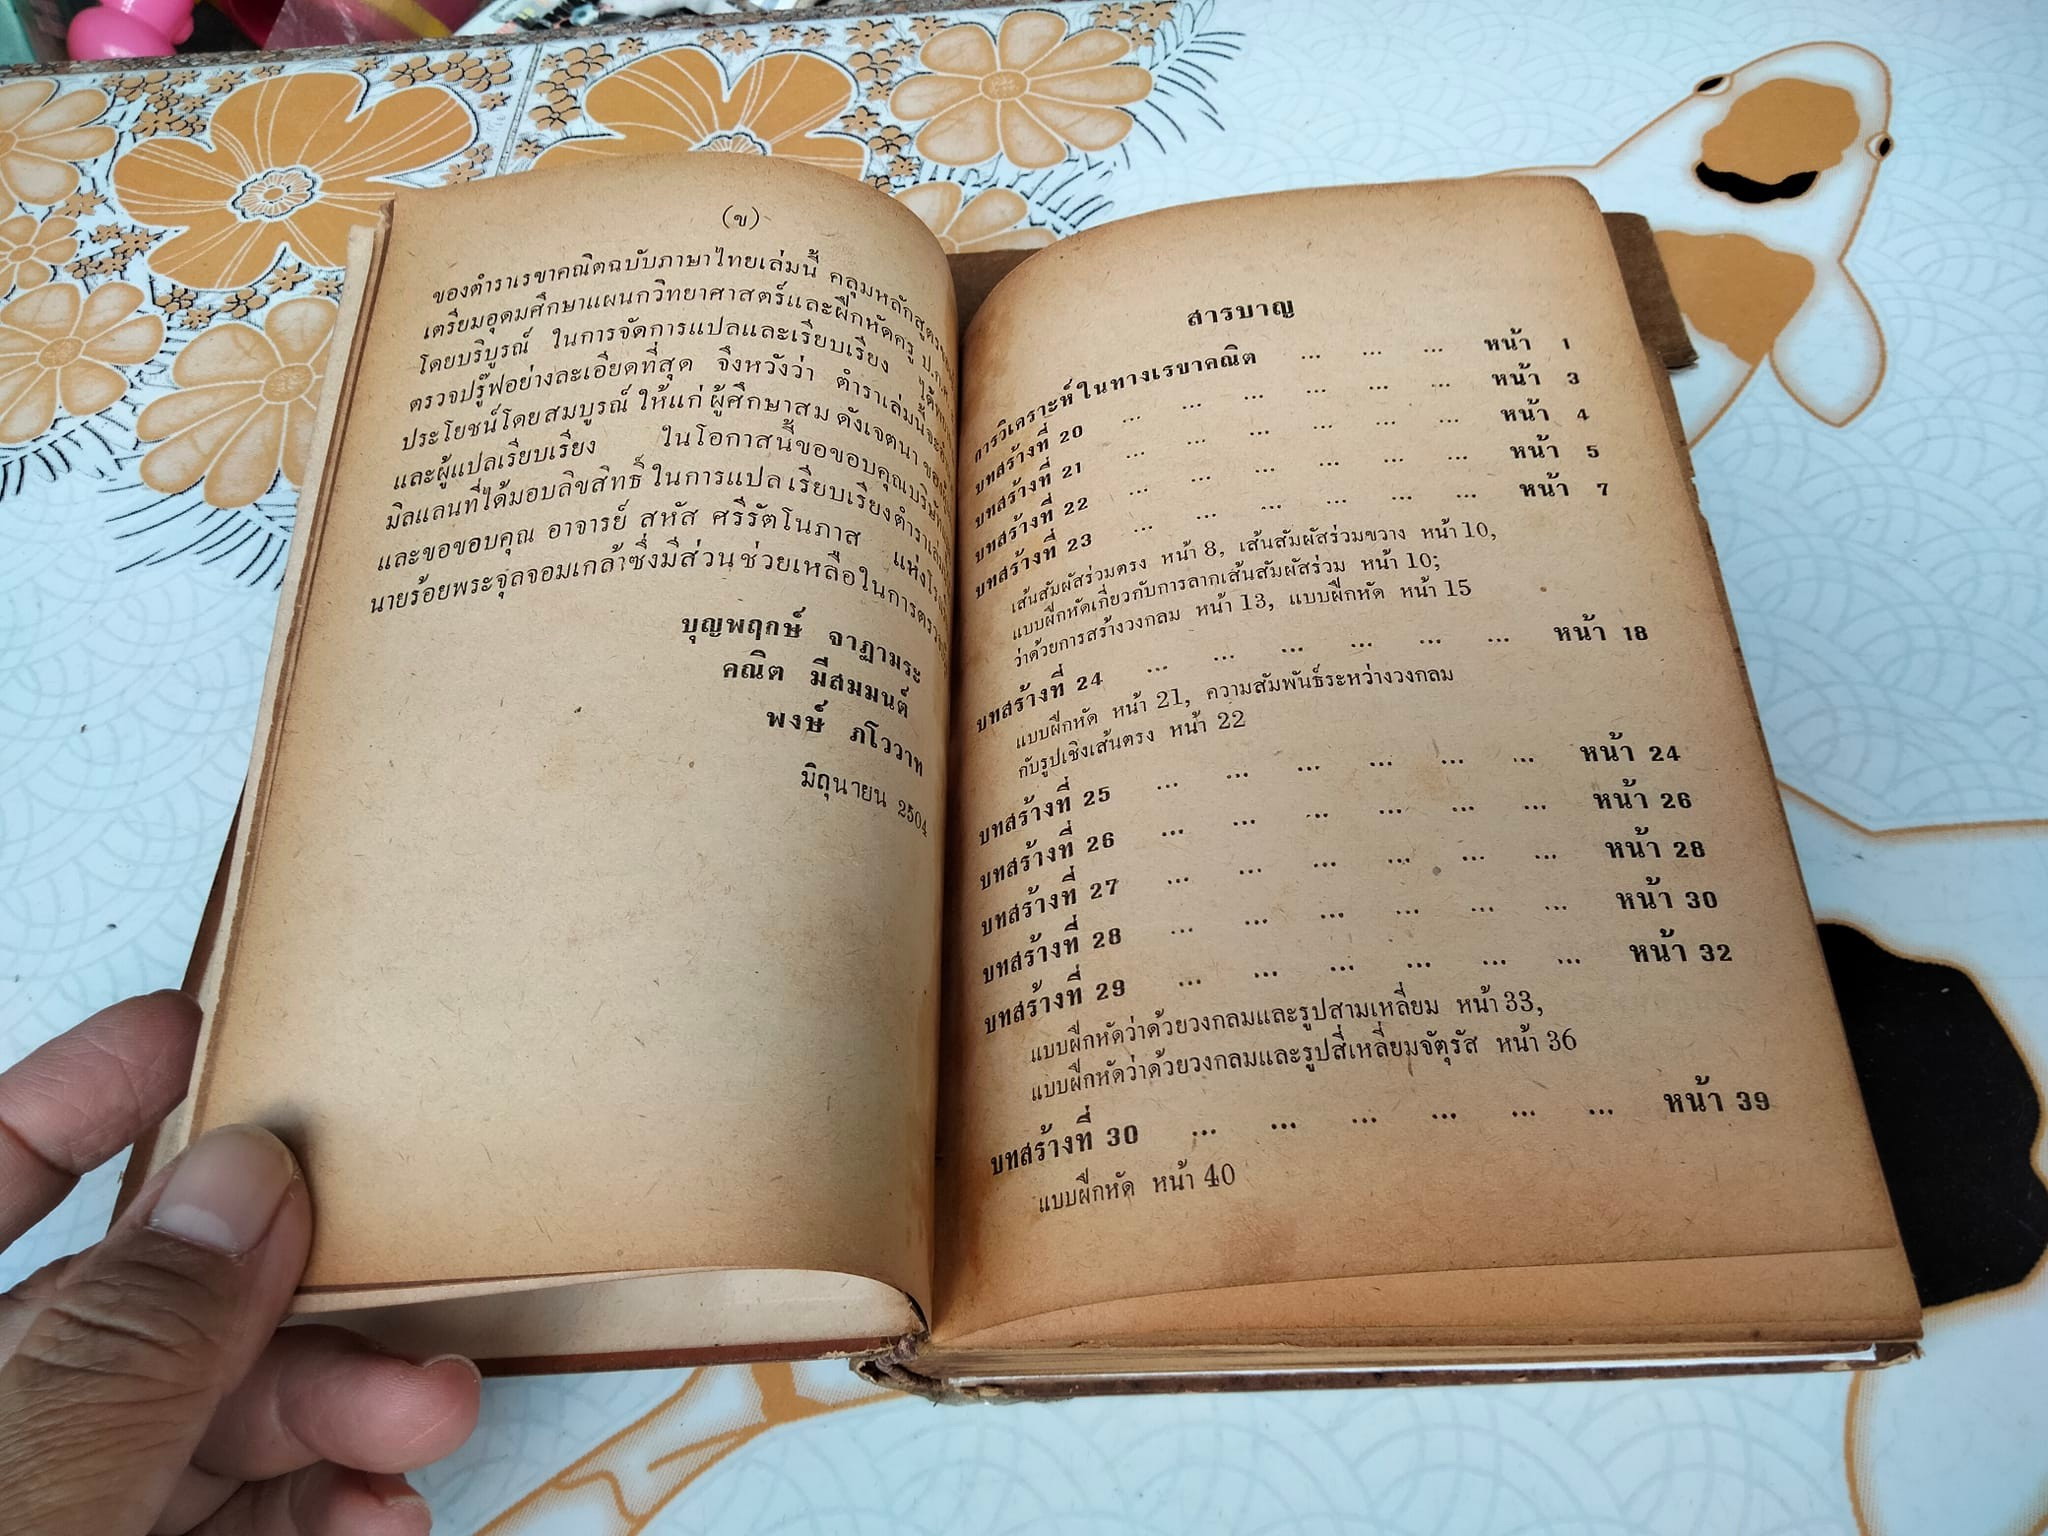 (ข)
ของตำราเรขาคณิตฉบับภาษาไทยเล่มนี้ คลุมหลักสูตร
เตรียมอุดมศึกษาแผนกวิทยาศาสตร์และฝึกหัดครู ป.ก.ศ.
โดยบริบูรณ์ ในการจัดการแปลและเรียบเรียง
ตรวจปรู๊ฟอย่างละเอียดที่สุด จึงหวังว่า ตำราเล่มนี้จะ
ประโยชน์โดยสมบูรณ์ ให้แก่ ผู้ศึกษาสม ดังเจตนา
และผู้แปลเรียบเรียง ในโอกาสนี้ขอขอบคุณบริษัท
มิลแลนที่ได้มอบลิขสิทธิ์ ในการแปล เรียบเรียงตำรา
และขอขอบคุณ อาจารย์ สหัส ศรีรัตโนภาส แห่ง
นายร้อยพระจุลจอมเกล้าซึ่งมีส่วนช่วยเหลือในการ
บุญพฤกษ์ จาฏามระ
คณิต มีสมมนต์
พงษ์ ภโววาท
มิถุนายน 2504
สารบาญ
การวิเคราะห์ในทางเรขาคณิต ... ... ... หน้า 1
บทสร้างที่ 20 ... ... ... ... ... หน้า 3
บทสร้างที่ 21 ... ... ... ... ... หน้า 4
บทสร้างที่ 22 ... ... ... ... ... หน้า 5
บทสร้างที่ 23 ... ... ... ... ... ... หน้า 7
เส้นสัมผัสร่วมตรง หน้า 8, เส้นสัมผัสร่วมขวาง หน้า 10,
แบบฝึกหัดเกี่ยวกับการลากเส้นสัมผัสร่วม หน้า 10;
ว่าด้วยการสร้างวงกลม หน้า 13, แบบฝึกหัด หน้า 15
บทสร้างที่ 24 ... ... ... ... ... ... หน้า 18
แบบฝึกหัด หน้า 21, ความสัมพันธ์ระหว่างวงกลม
กับรูปเชิงเส้นตรง หน้า 22
บทสร้างที่ 25 ... ... ... ... ... ... หน้า 24
บทสร้างที่ 26 ... ... ... ... ... ... หน้า 26
บทสร้างที่ 27 ... ... ... ... ... ... หน้า 28
บทสร้างที่ 28 ... ... ... ... ... ... หน้า 30
บทสร้างที่ 29 ... ... ... ... ... ... หน้า 32
แบบฝึกหัดว่าด้วยวงกลมและรูปสามเหลี่ยม หน้า 33,
แบบฝึกหัดว่าด้วยวงกลมและรูปสี่เหลี่ยมจัตุรัส หน้า 36
บทสร้างที่ 30 ... ... ... ... ... ... หน้า 39
แบบฝึกหัด หน้า 40